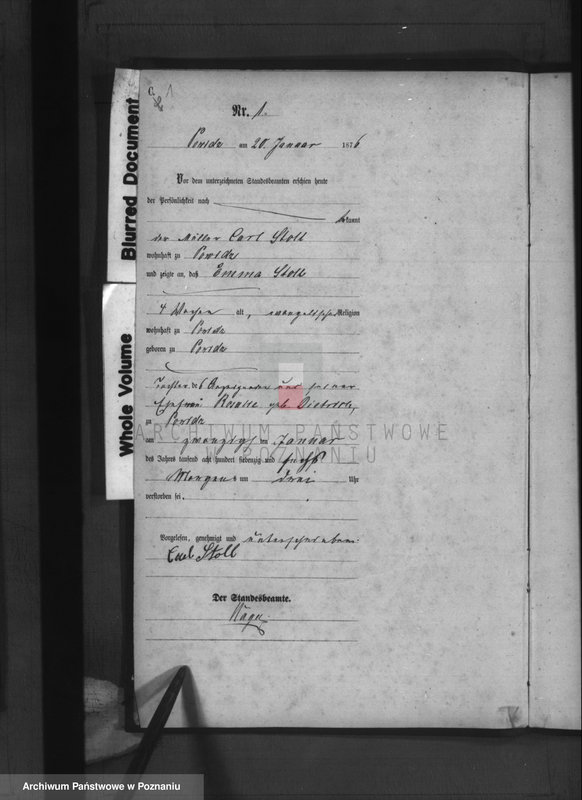 C.
1
Nr. 1.
Powidz am 20. Januar 1876
Vor dem unterzeichneten Standesbeamten erschien heute
der Persönlichkeit nach
bekannt
der Müller Carl Stoll
wohnhaft zu Powidz
und zeigte an, daß Emma Stoll
4 Wochen alt, evangelischer Religion
wohnhaft zu Powidz
geboren zu Powidz
Tochter des Angezeigenden und seiner
Ehefrau Rosalie geb.
zu Powidz
am zwanzigsten Januar
des Jahres tausend acht hundert siebenzig und sechs
Morgens um drei Uhr
verstorben sei.
Vorgelesen, genehmigt und unterschrieben.
Carl Stoll
Der Standesbeamte.
Blurred Document
Whole Volume
ARCHIWUM PAŃSTWOWE
W POZNANIU
Archiwum Państwowe w Poznaniu